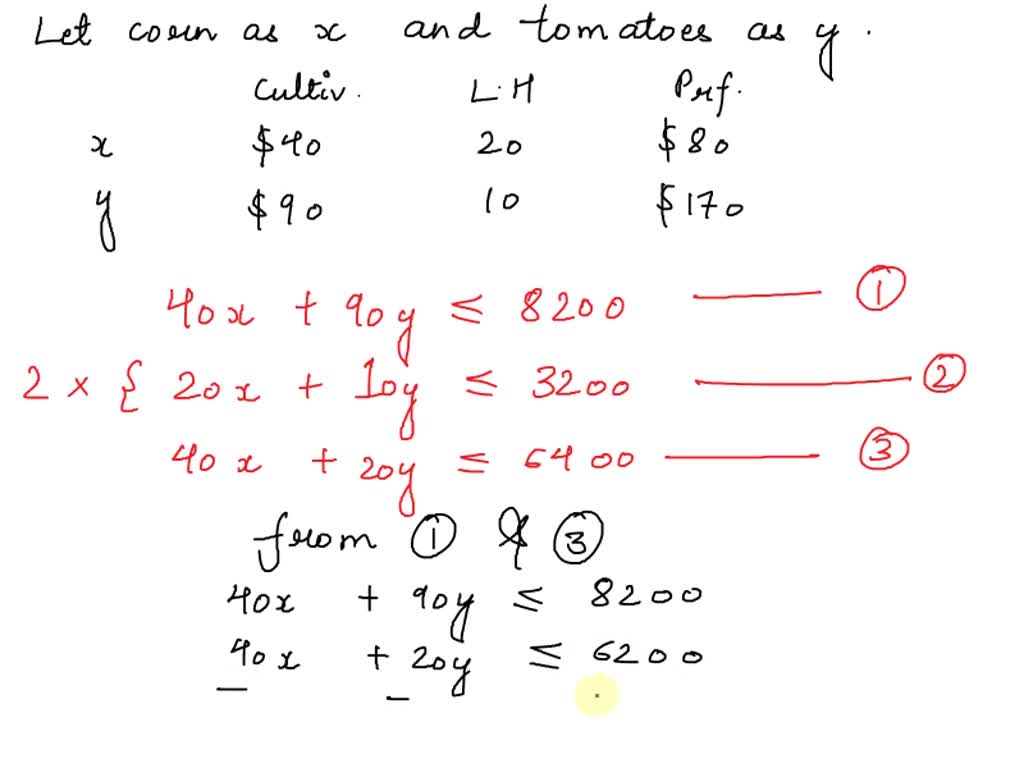 Let corn as x and tomatoes as y.
Cultiv. L.H Prf.
x $40 20 $80
y $90 10 $170
40x + 90y ≤ 8200 —— ①
2 × { 20x + 10y ≤ 3200 —— ②
40x + 20y ≤ 6400 —— ③
from ① & ③
40x + 90y ≤ 8200
40x + 20y ≤ 6200
— —